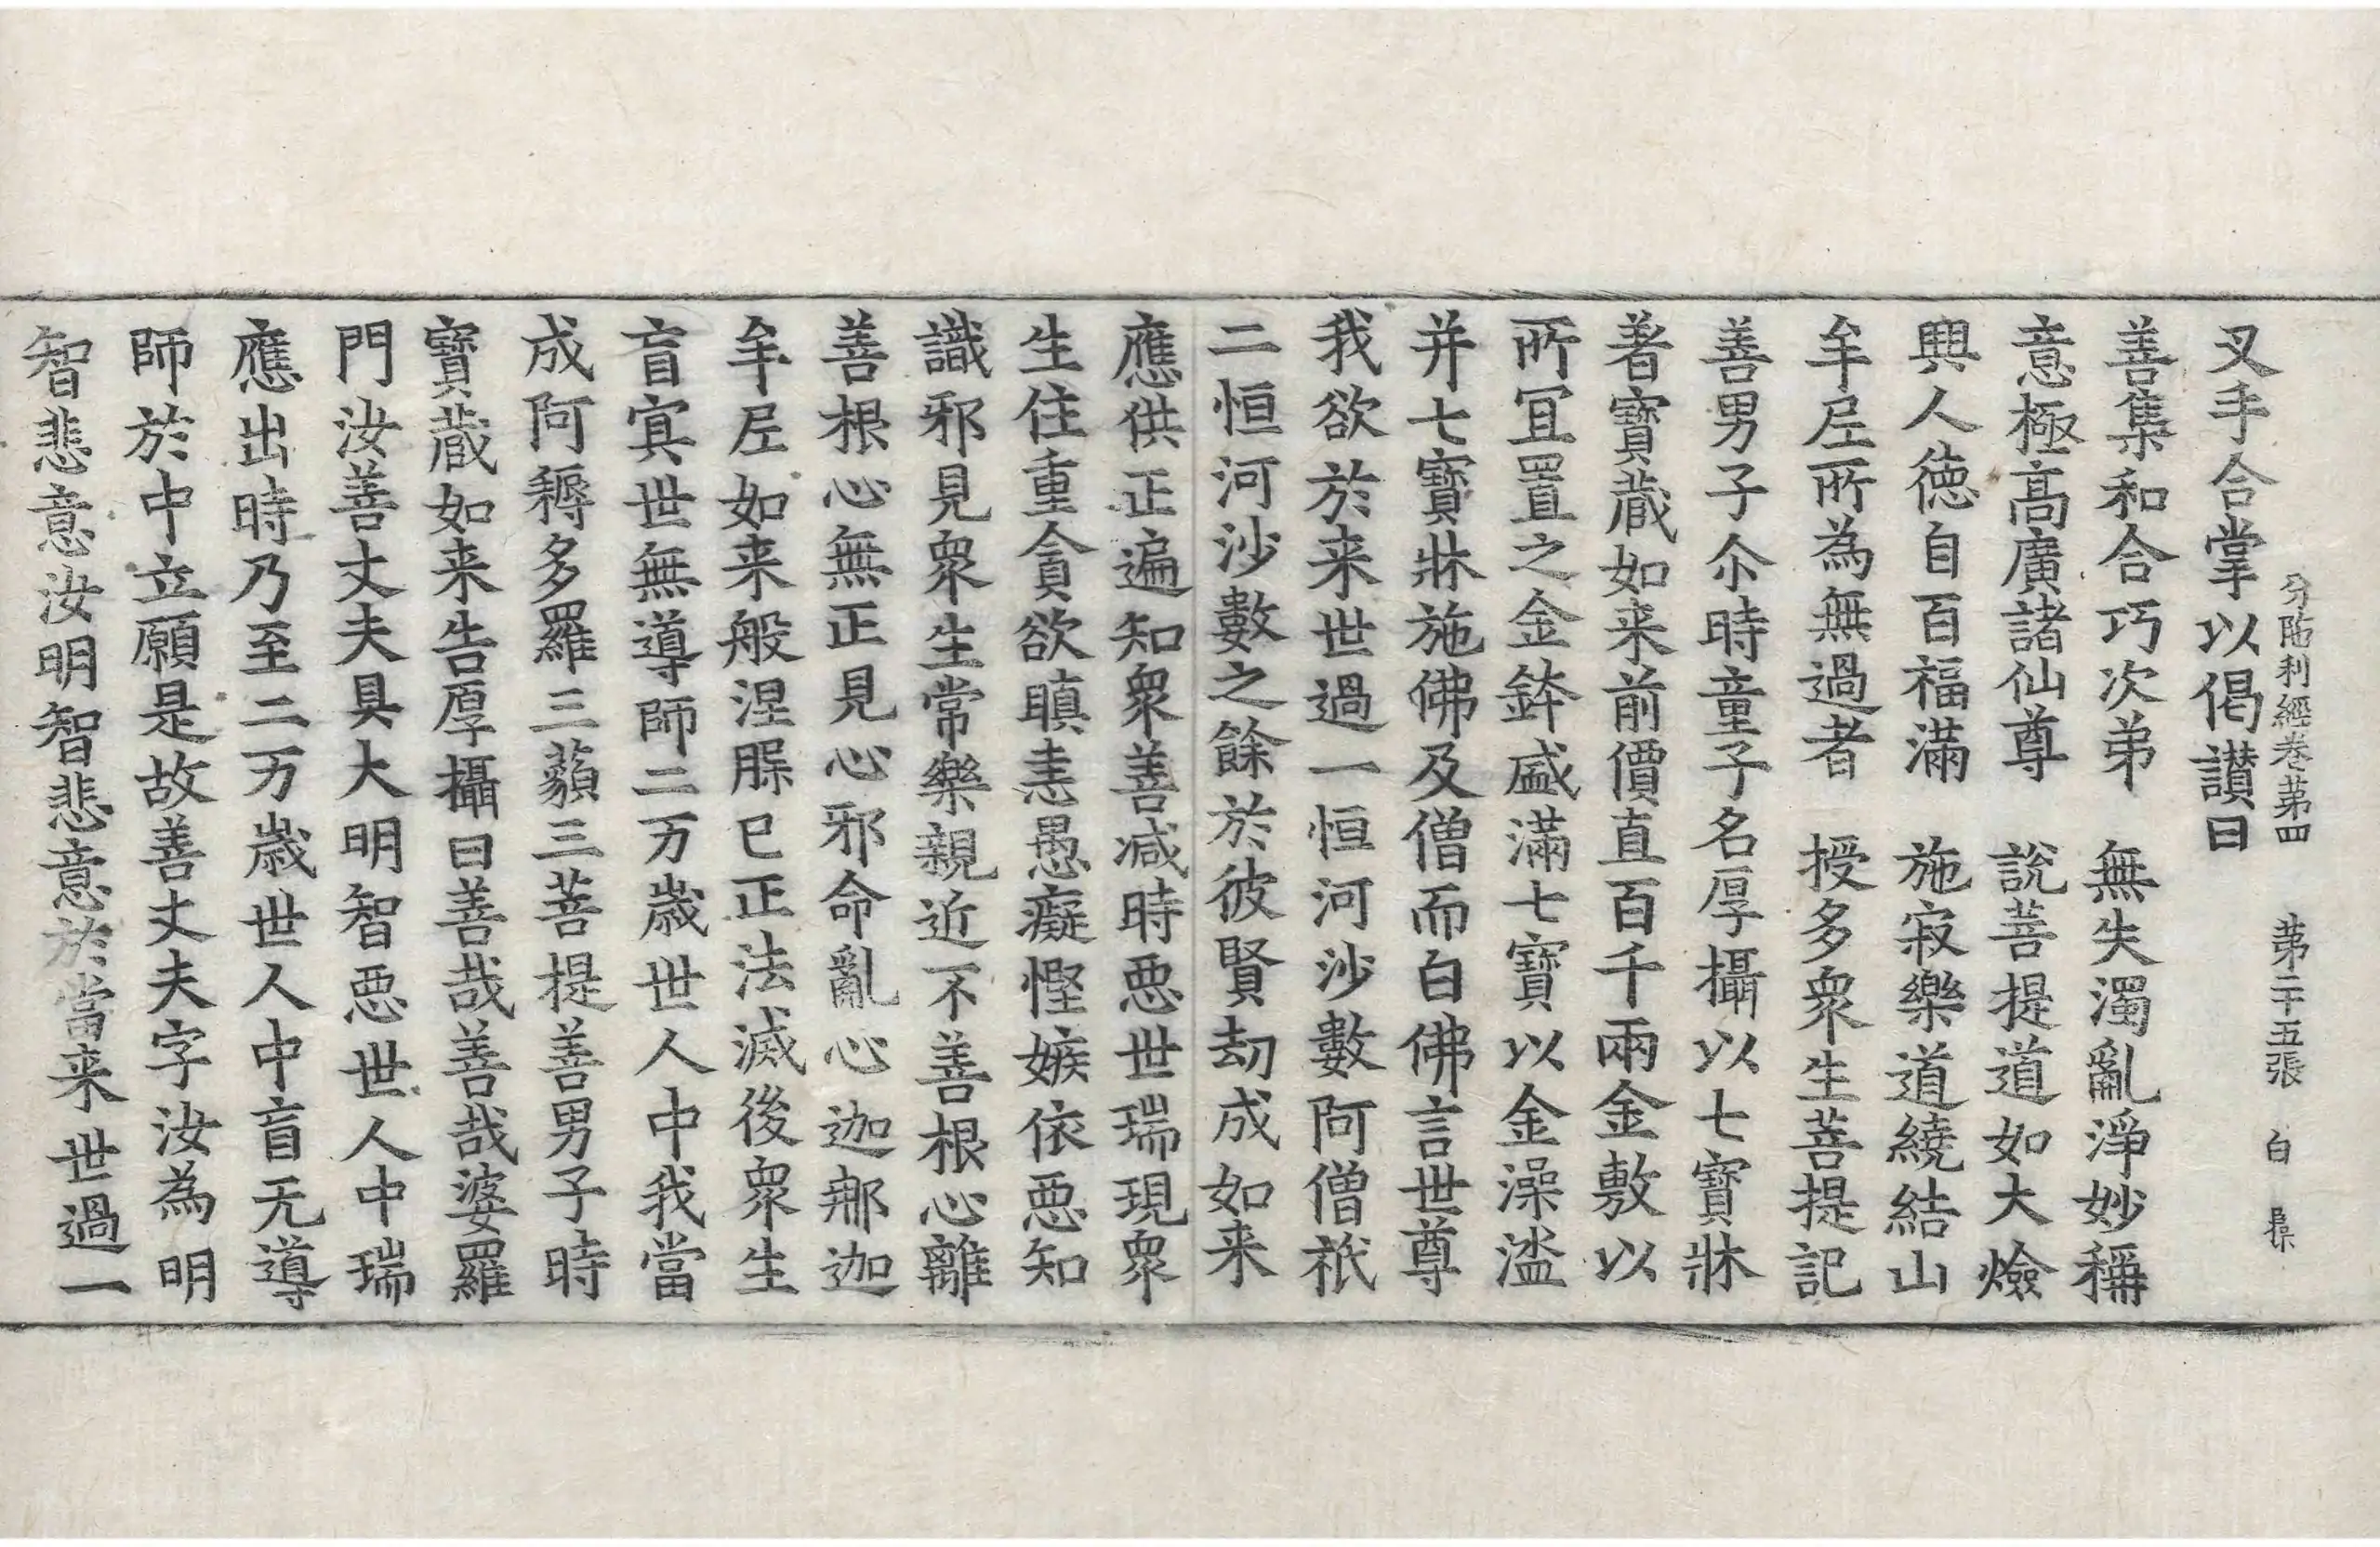 分陁利經卷第四 第二十五張 白
叉手合掌以偈讃曰
善集和合巧次弟 無失濁亂淨妙稱
意極高廣諸仙尊 說菩提道如大燄
興人徳自百福滿 施寂樂道繞結山
牟𡰱所為無過者 授多衆生菩提記
善男子尒時童子名厚攝以七寶牀
著寶蔵如来前價直百千兩金敷以
所冝置之金鉢盛滿七寶以金澡盗
并七寶牀施佛及僧而白佛言世尊
我欲於来世過一恒河沙數阿僧祇
二恒河沙數之餘於彼賢劫成如来
應供正遍知衆善减時惡世瑞現衆
生住重貪欲瞋恚愚癡慳嫉依惡知
識邪見衆生常樂親近不善根心離
善根心無正見心邪命亂心迦郍迦
牟𡰱如来般涅槃已正法滅後衆生
盲㝠世無導師二万歳世人中我當
成阿耨多羅三藐三菩提善男子時
寶蔵如来告厚攝曰善哉善哉婆羅
門汝善丈夫具大明智惡世人中瑞
應出時乃至二万歳世人中盲无導
師於中立願是故善丈夫字汝為明
智悲意汝明智悲意於當来世過一